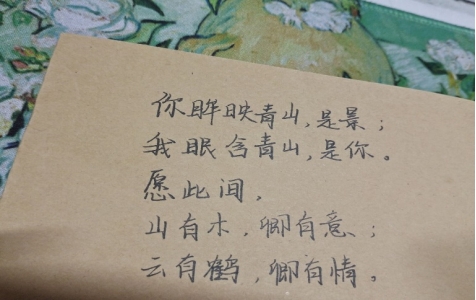 你眸映青山，是景；
我眼含青山，是你。
愿此间，
山有木，卿有意；
云有鹤，卿有情。